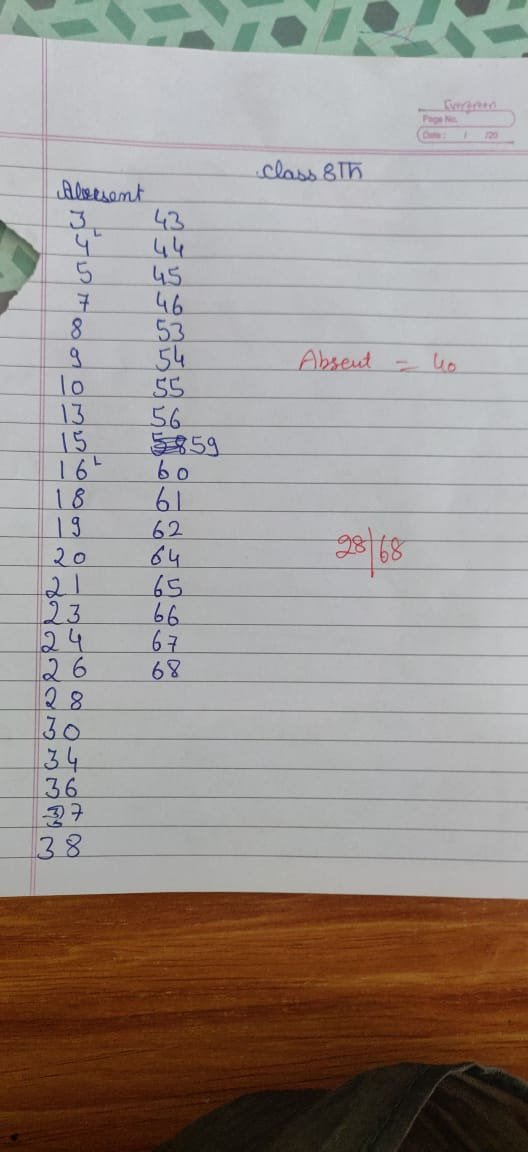 Evergreen
Page No.
Date: / /20
Class 8Th
Abersent
3 43
4L 44
5 45
7 46
8 53
9 54
Absent = 40
10 55
13 56
15 59
16L 60
18 61
19 62
28/68
20 64
21 65
23 66
24 67
26 68
28
30
34
36
37
38